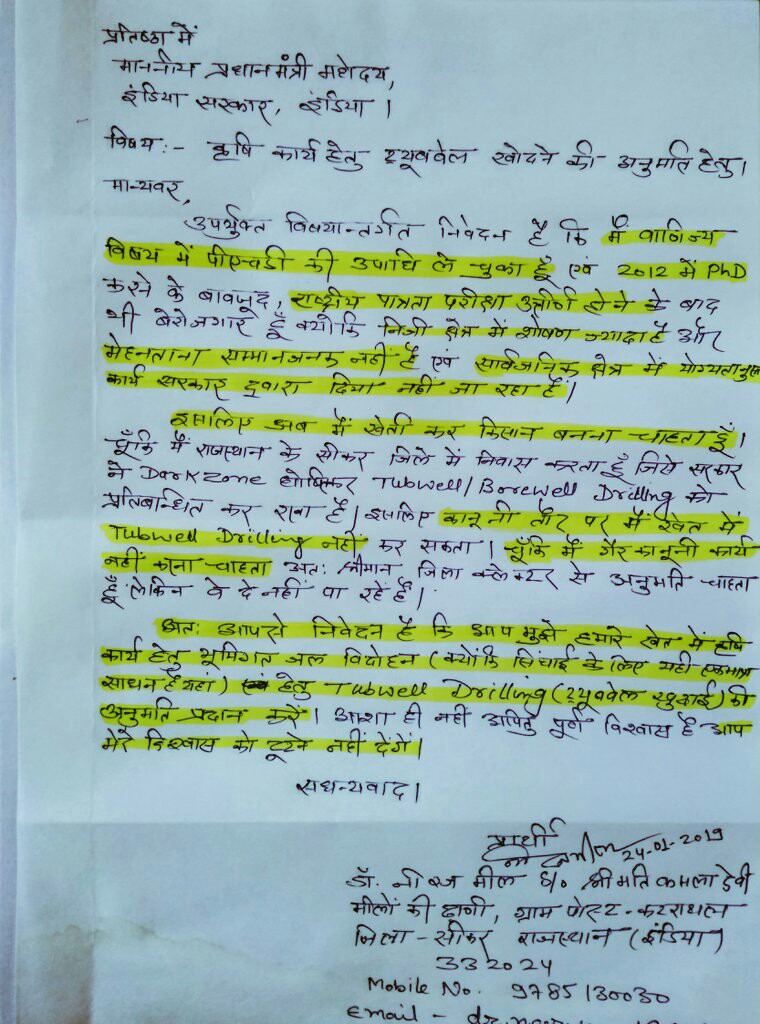 प्रतिष्ठा में
माननीय प्रधानमंत्री महोदय,
इंडिया सरकार, इंडिया।
विषय:- कृषि कार्य हेतु ट्यूबवेल खोदने की अनुमति हेतु।
मान्यवर,
उपर्युक्त विषयान्तर्गत निवेदन है कि मैं वाणिज्य
विषय में पीएचडी की उपाधि ले चुका हूँ एवं 2012 में PhD
करने के बावजूद, राष्ट्रीय पात्रता परीक्षा उत्तीर्ण होने के बाद
भी बेरोजगार हूँ क्योंकि निजी क्षेत्र में शोषण ज्यादा है और
मेहनताना सम्मानजनक नहीं है एवं सार्वजनिक क्षेत्र में योग्यतानुसार
कार्य सरकार द्वारा दिया नहीं जा रहा है।
इसलिए अब मैं खेती कर किसान बनना चाहता हूँ।
चूँकि मैं राजस्थान के सीकर जिले में निवास करता हूँ जिसे सरकार
ने Dark Zone घोषितकर Tubwell/Borewell Drilling को
प्रतिबन्धित कर रखा है। इसलिए कानूनी तौर पर मैं खेत में
Tubwell Drilling नहीं कर सकता। चूँकि मैं गैर कानूनी कार्य
नहीं करना चाहता अत: श्रीमान जिला कलेक्टर से अनुमति चाहता
हूँ लेकिन वे दे नहीं पा रहें हैं।
अत: आपसे निवेदन है कि आप मुझे हमारे खेत में कृषि
कार्य हेतु भूमिगत जल विदोहन (क्योंकि सिंचाई के लिए यही एकमात्र
साधन है यहां) हेतु Tubwell Drilling (ट्यूबवेल खुदाई) की
अनुमति प्रदान करें। आशा ही नहीं अपितु पूर्ण विश्वास है आप
मेरे विश्वास को टूटने नहीं देंगें।
सधन्यवाद।
प्रार्थी
24-01-2019
डॉ. नीरज मील S/o श्रीमति कमला देवी
मीलों की ढाणी, ग्राम पोस्ट-कटराथल
जिला-सीकर राजस्थान (इंडिया)
332024
Mobile No. 9785130030
Email -